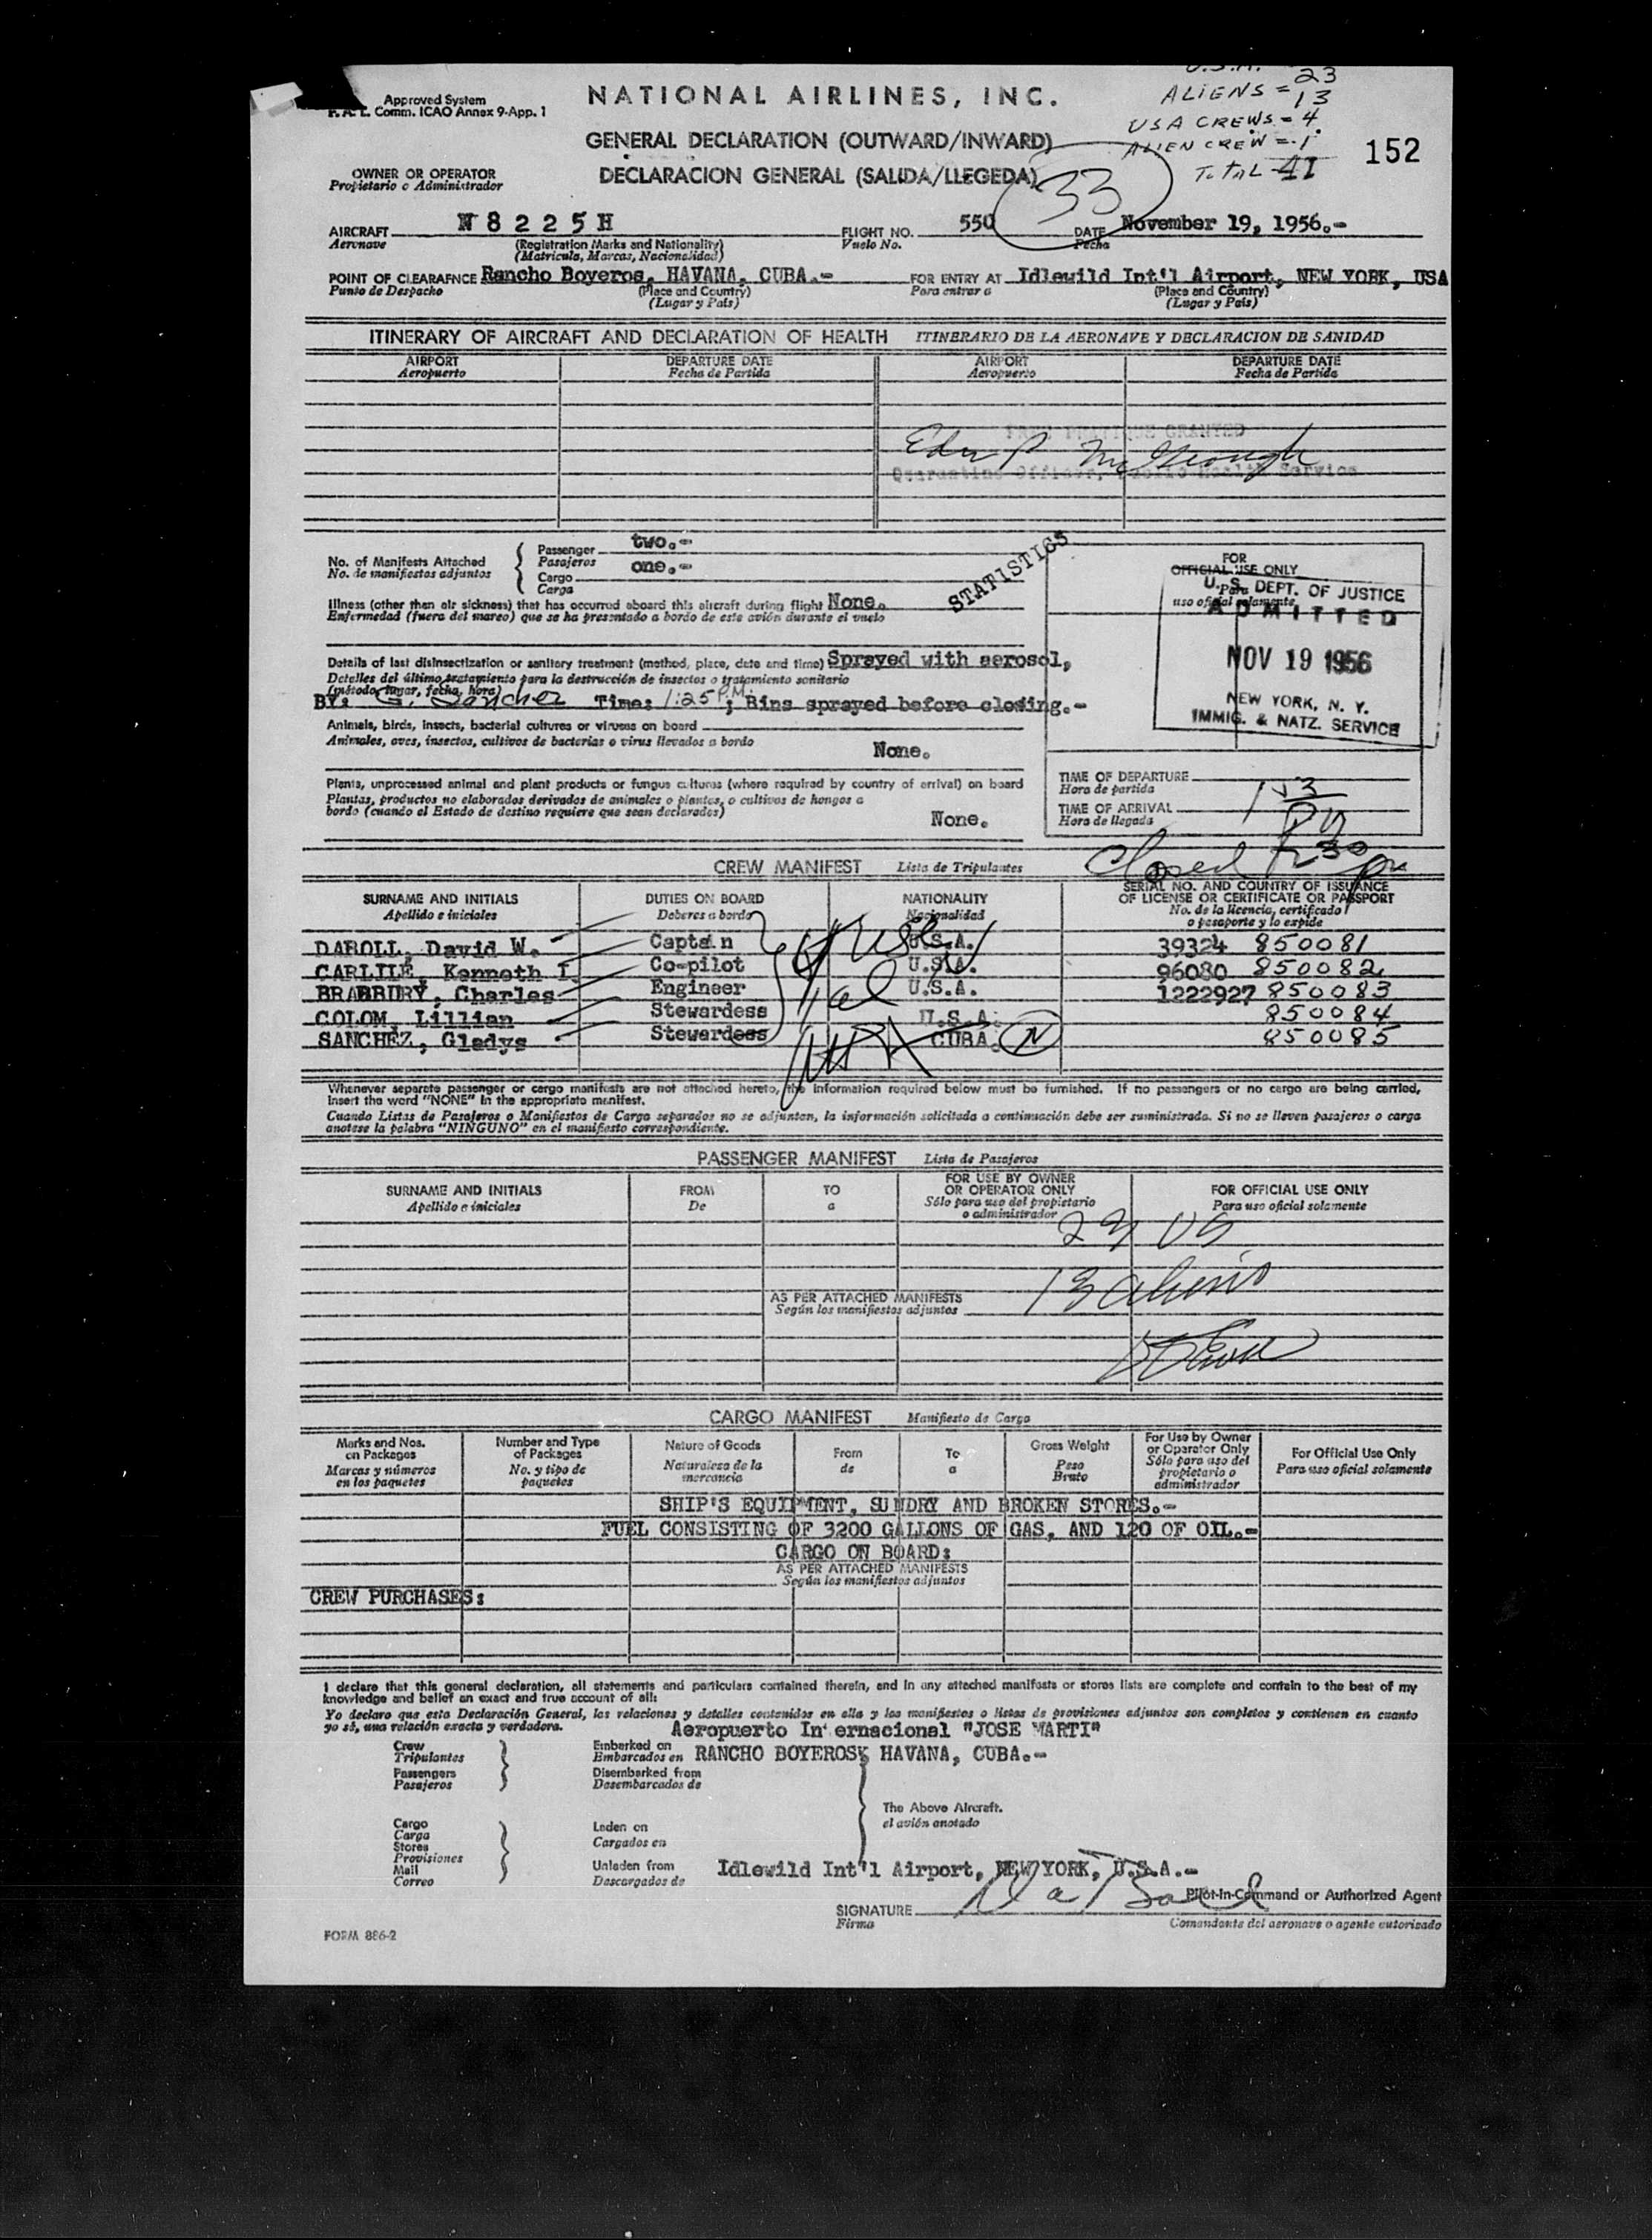 Approved System
F. A. L. Comm. ICAO Annex 9-App. 1
NATIONAL AIRLINES, INC.
GENERAL DECLARATION (OUTWARD/INWARD)
DECLARACION GENERAL (SALIDA/LLEGEDA)
U.S.A. 23
ALIENS = 13
USA CREWS = 4
ALIEN CREW = 1
TOTAL 41
152
33
OWNER OR OPERATOR
Propietario o Administrador
AIRCRAFT N 8 2 2 5 H FLIGHT NO. 550 DATE November 19, 1956.-
Aeronave (Registration Marks and Nationality) Vuelo No. Fecha
(Matricula, Marcas, Nacionalidad)
POINT OF CLEARAFNCE Rancho Boyeros, HAVANA, CUBA.- FOR ENTRY AT Idlewild Int'l Airport, NEW YORK, USA
Punto de Despacho (Place and Country) Para entrar a (Place and Country)
(Lugar y País) (Lugar y País)
ITINERARY OF AIRCRAFT AND DECLARATION OF HEALTH ITINERARIO DE LA AERONAVE Y DECLARACION DE SANIDAD
AIRPORT DEPARTURE DATE AIRPORT DEPARTURE DATE
Aeropuerto Fecha de Partida Aeropuerto Fecha de Partida
FREE PRATIQUE GRANTED
Quarantine Officer, Public Health Service
No. of Manifests Attached Passenger two.-
No. de manifiestos adjuntos Pasajeros
Cargo one.-
Carga
STATISTICS
Illness (other than air sickness) that has occurred aboard this aircraft during flight None.
Enfermedad (fuera del mareo) que se ha presentado a bordo de este avión durante el vuelo
Details of last disinsectization or sanitary treatment (method, place, date and time) Sprayed with aerosol,
Detalles del último tratamiento para la destrucción de insectos o tratamiento sanitario
(método, lugar, fecha, hora)
BY: G. Sanchez Time: 1:25 P.M.; Bins sprayed before closing.-
Animals, birds, insects, bacterial cultures or viruses on board
Animales, aves, insectos, cultivos de bacterias o virus llevados a bordo None.
Plants, unprocessed animal and plant products or fungus cultures (where required by country of arrival) on board
Plantas, productos no elaborados derivados de animales o plantas, o cultivos de hongos a
bordo (cuando el Estado de destino requiere que sean declarados) None.
FOR
OFFICIAL USE ONLY
Para
uso oficial solamente
U. S. DEPT. OF JUSTICE
ADMITTED
NOV 19 1956
NEW YORK, N. Y.
IMMIG. & NATZ. SERVICE
TIME OF DEPARTURE
Hora de partida
TIME OF ARRIVAL
Hora de llegada
Closed
CREW MANIFEST Lista de Tripulantes
SURNAME AND INITIALS DUTIES ON BOARD NATIONALITY SERIAL NO. AND COUNTRY OF ISSUANCE
OF LICENSE OR CERTIFICATE OR PASSPORT
Apellido e iniciales Deberes a bordo Nacionalidad No. de la licencia, certificado
o pasaporte y lo expide
DAROLL, David W. Captain U.S.A. 39324 850081
CARLILE, Kenneth I. Co-pilot U.S.A. 96080 850082
BRADBURY, Charles Engineer U.S.A. 1222927 850083
COLOM, Lillian Stewardess U.S.A. 850084
SANCHEZ, Gladys Stewardess CUBA. N 850085
Whenever separate passenger or cargo manifests are not attached hereto, the information required below must be furnished. If no passengers or no cargo are being carried,
insert the word "NONE" in the appropriate manifest.
Cuando Listas de Pasajeros o Manifiestos de Carga separados no se adjuntan, la información solicitada a continuación debe ser suministrada. Si no se lleven pasajeros o carga
anotese la palabra "NINGUNO" en el manifiesto correspondiente.
PASSENGER MANIFEST Lista de Pasajeros
SURNAME AND INITIALS FROM TO FOR USE BY OWNER
OR OPERATOR ONLY FOR OFFICIAL USE ONLY
Apellido e iniciales De a Sólo para uso del propietario
o administrador Para uso oficial solamente
23 US
13 aliens
AS PER ATTACHED MANIFESTS
Según los manifiestos adjuntos
CARGO MANIFEST Manifiesto de Carga
Marks and Nos.
on Packages
Marcas y números
en los paquetes
Number and Type
of Packages
No. y tipo de
paquetes
Nature of Goods
Naturaleza de la
mercancia
From
de
To
a
Gross Weight
Peso
Bruto
For Use by Owner
or Operator Only
Sólo para uso del
propietario o
administrador
For Official Use Only
Para uso oficial solamente
SHIP'S EQUIPMENT, SUNDRY AND BROKEN STORES.-
FUEL CONSISTING OF 3200 GALLONS OF GAS, AND 120 OF OIL.-
CARGO ON BOARD:
AS PER ATTACHED MANIFESTS
Según los manifiestos adjuntos
CREW PURCHASES:
I declare that this general declaration, all statements and particulars contained therein, and in any attached manifests or stores lists are complete and contain to the best of my
knowledge and belief an exact and true account of all:
Yo declaro que esta Declaración General, las relaciones y detalles contenidos en ella y los manifiestos o listas de provisiones adjuntos son completos y contienen en cuanto
yo sé, una relación exacta y verdadera.
Aeropuerto In ernacional "JOSE MARTI"
Crew Embarked on
Tripulantes Embarcados en RANCHO BOYEROS, HAVANA, CUBA.-
Passengers Disembarked from
Pasajeros Desembarcados de
The Above Aircraft.
el avión anotado
Cargo Laden on
Carga
Stores Cargados en
Provisiones
Mail Unladen from Idlewild Int'l Airport, NEW YORK, U.S.A.-
Correo Descargados de
Pilot-in-Command or Authorized Agent
SIGNATURE
Firma Comandante del aeronave o agente autorizado
FORM 886-2